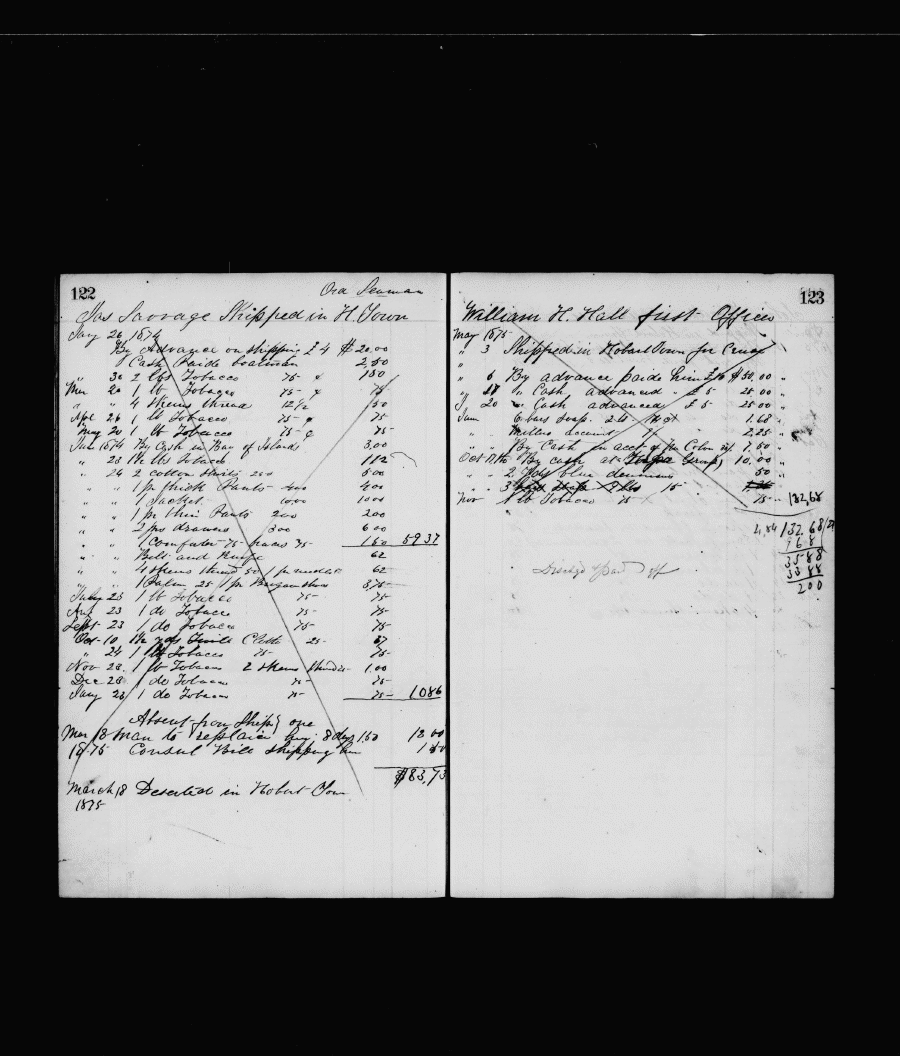 122
Ord Seaman
Jas Savvage Shipped in H. Town
Jany 26 1874
By Advance on shipping £ 4 $ 20.00
" Cash Paide boatman 2,50
" 30 2 lbs Tobacco 75 - 1 50
Mar 20 1 lb Tobacco 75 - 75
" " 4 skens thread 12 1/2 50
Apl 26 1 lb Tobacco 75 - 75
May 20 1 lb Tobacco 75 75
Jun 1874 By Cash in Bay of Islands 3,00
" 23 1 1/2 lbs Tobacco 1 12
" 24 2 cotton shirts 250 500
" " 1 pr thick Pants 400 400
" " 1 Jacket 1000 1000
" " 1 pr thin Pants 200 200
" " 2 prs drawers 300 600
" " 1 Comforter 75 75 1 50 59 37
" " Belt and Knife 62
" " 4 skens thread 50 1 62
" " 1 Palm 25 1 pr Brogan shoes 3,75
July 23 1 lb Tobacco 75 75
Aug 23 1 do Tobacco 75 75
Sept 23 1 do Tobacco 75 75
Oct 10 1 1/2 yds Twill Cloth 25 37
" 24 1 lb Tobacco 75 75
Nov 28 1 lb Tobacco 2 skens 1,00
Dec 28 1 do Tobacco 75 75
Jany 23 1 do Tobacco 75 75 10 86
Absent from Ship one
Mar 18 man to replace him 8 days 1.50 12 00
1875 Consul Bill shipping him 1 50
$83,73
March 18 Deserted in Hobart Town
1875
123
William H. Hall first Officer
May 1875
" 3 Shipped in Hobart Town for Cruse
" 6 By advance paide him £10 $50,00
" 17 " Cash advanced £ 5 25,00
Jy 20 " Cash advanced £ 5 25 00
Jan 6 bars soap 1.68
" " Millers account 2,25
" By Cash on acc of 1.50
Oct By cash at Group 10,00
" " 2 yds blue denim 50
" " 3
Nov 1 lb Tobacco 75 75 132,68
4,84 132.68
968
3588
3388
200
Dischgd & paid off